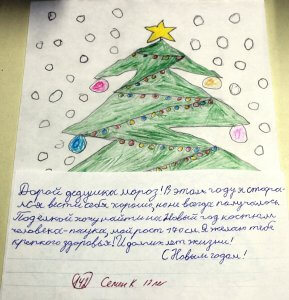 Дорогой дедушка мороз! В этом году я старал-
ся вести себя хорошо, но не всегда получалось.
Под елкой хочу найти на Новый год костюм
человека-паука, мой рост 140 см. Я желаю тебе
крепкого здоровья! И долгих лет жизни!
С Новым годом!
141 Семен К. 12 лет